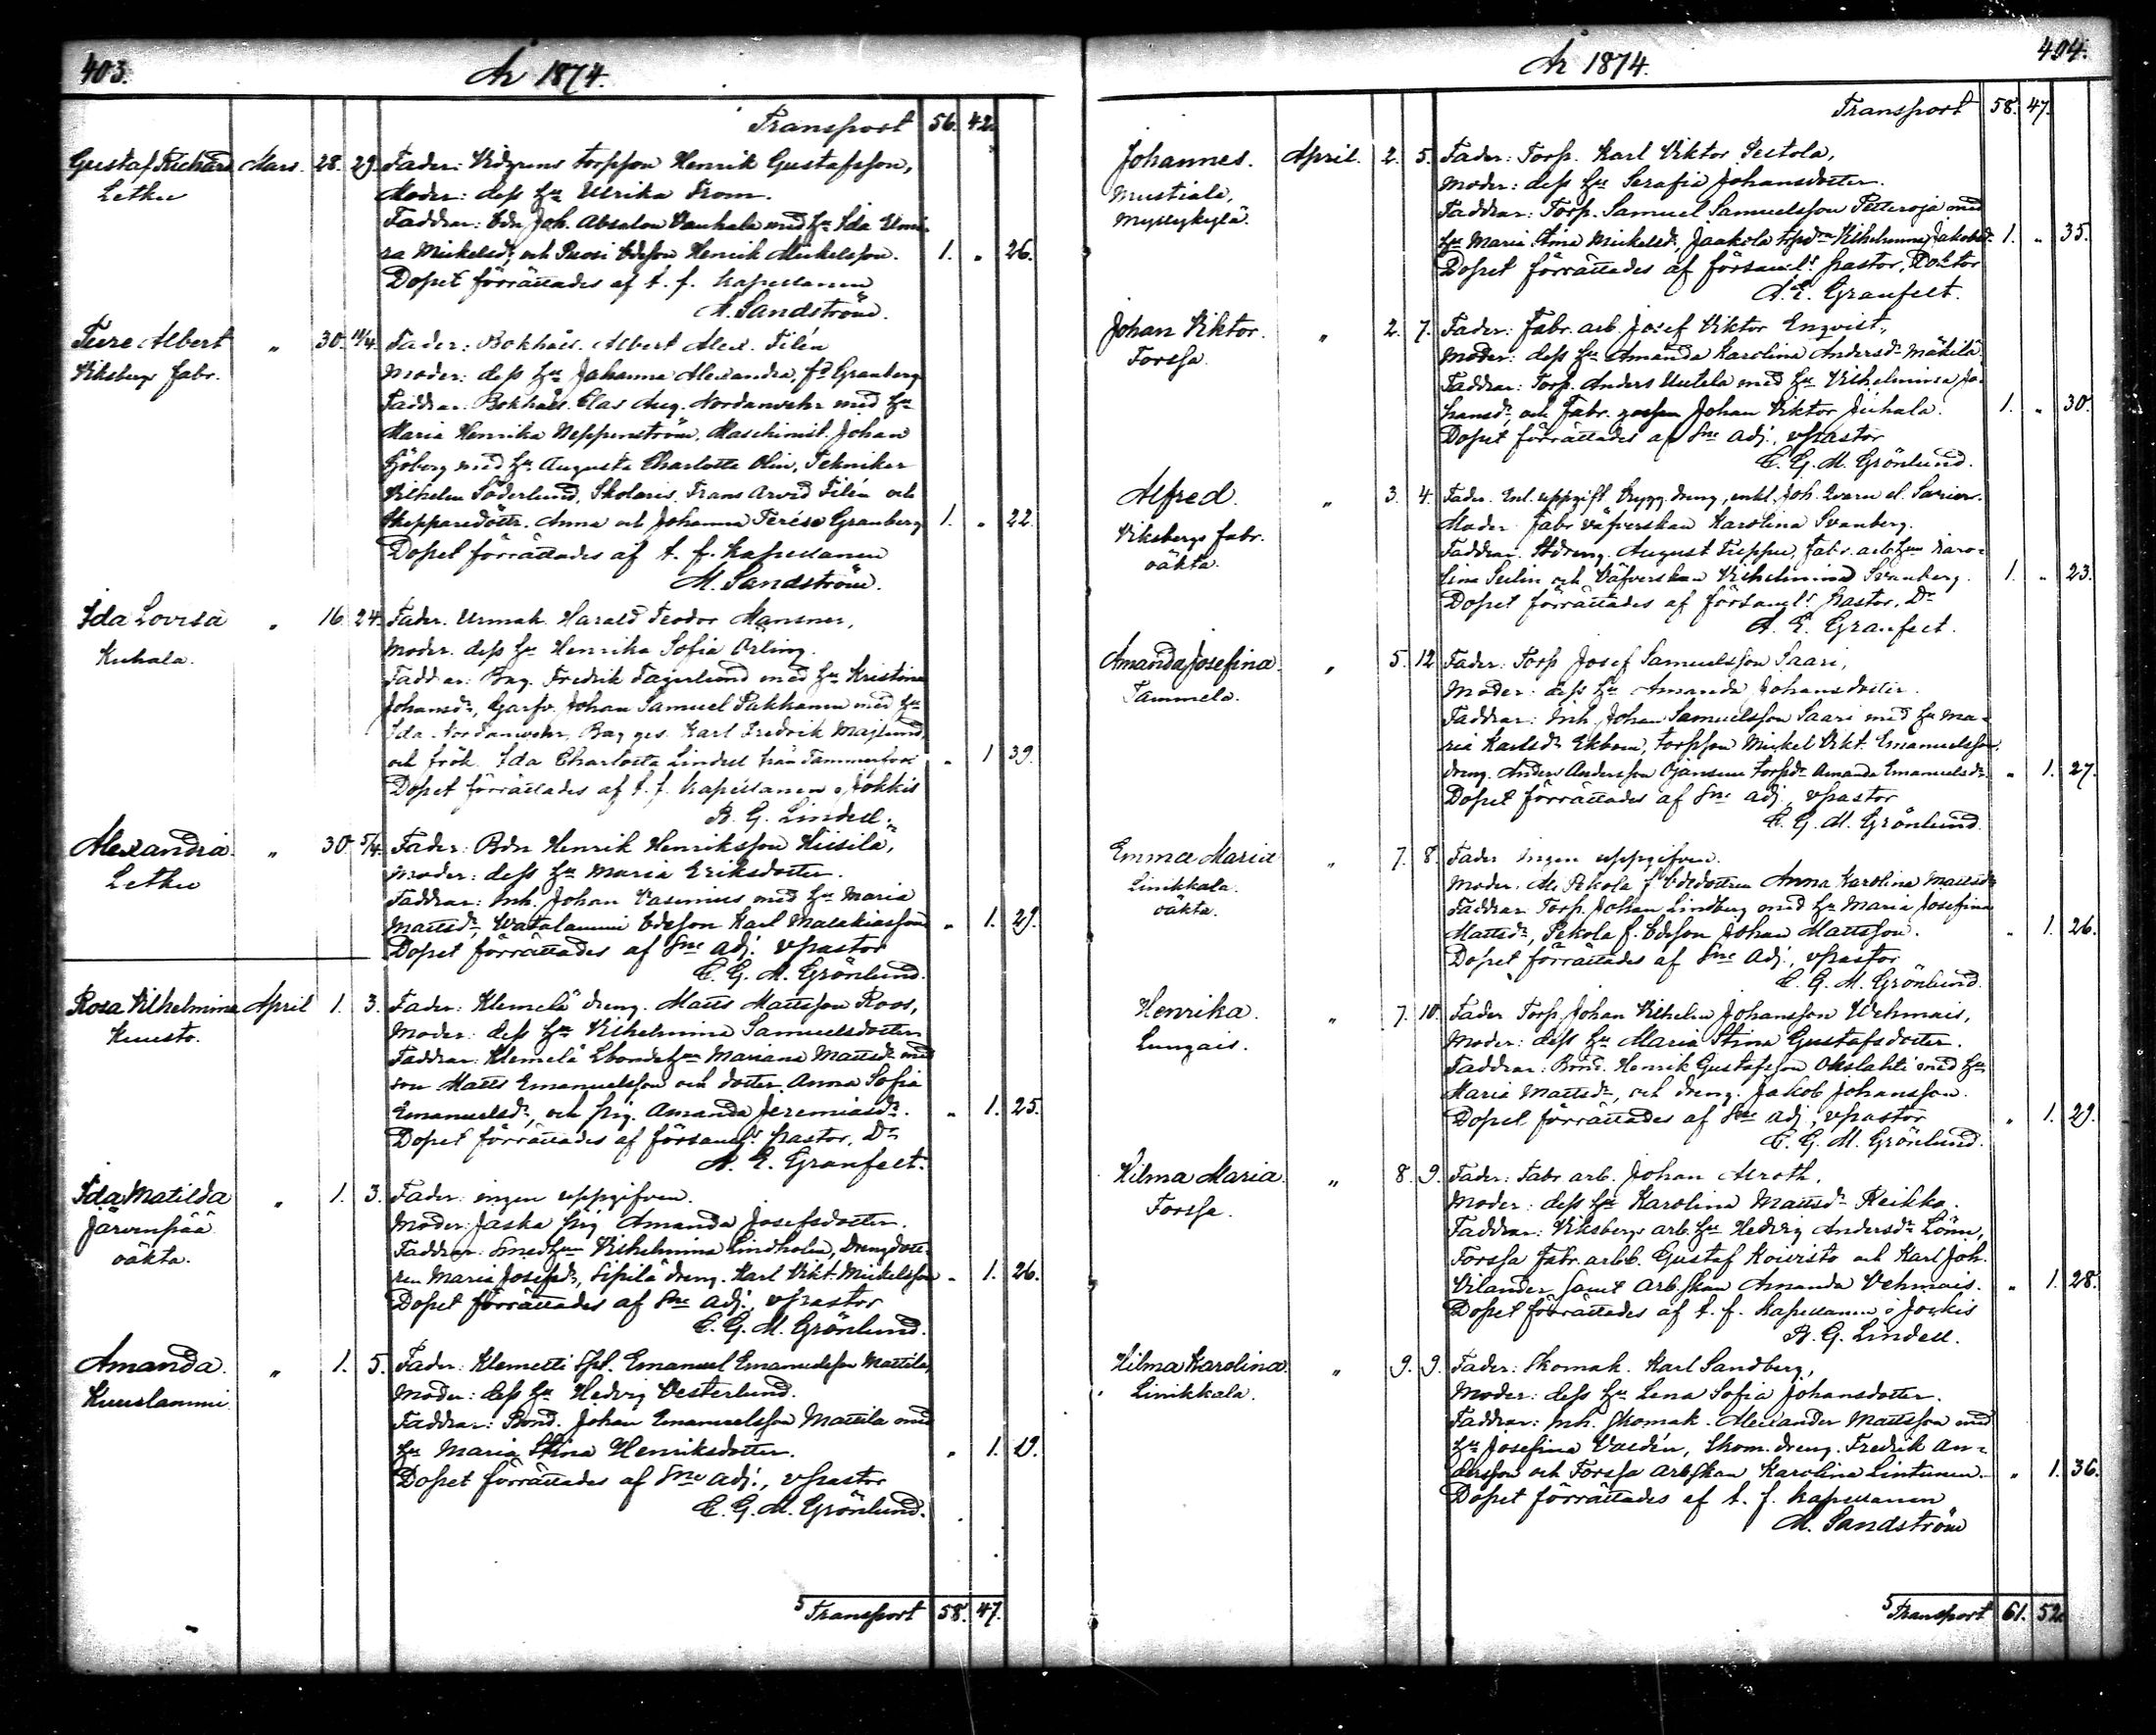 403.
År 1874.
Transport 56. 42.
Gustaf Richard Mars. 28. 29. Fader: torpson Henrik Gustafsson,
Lethu Moder: dess Hu Ulrika From.
Faddrar: Bdn Joh. Absalon Vanhala med Hu Ida
Mickelsdr, och Bdeson Henrik Mickelsson. 1. „ 26.
Dopet förrättades af t. f. kapellanen
M. Sandström.
Ture Albert „ 30. 11/4. Fader: Bokhåll. Albert Alex. Tilén
Viksbergs fabr. Moder: dess Hu Johanna Alexandra, fd Granberg
Faddrar: Bokhåll. Clas Aug. Nordanwehr med Hu
Maria Henrika Weppenström, Maschinist. Johan
Sjöberg med Hu Augusta Charlotta Olin, Tekniker
Vilhelm Söderlund, Skolaris. Frans Arvid Tilén och
Skepparedöttr. Anna och Johanna Terése Granberg 1. „ 22.
Dopet förrättades af t. f. kapellanen
M. Sandström.
Ida Lovisa „ 16. 24. Fader. Urmak. Harald Teodor Mansner,
Kuhala. Moder. dess Hu Henrika Sofia Örling.
Faddrar: Bag. Fredrik Fagerlund med Hu Kristina
Johansdr, Garfv. Johan Samuel Pakkanen med Hu
Ida Nordanwehr, Bag. ges. Karl Fredrik Majlund,
och frök. Ida Charlotta Lindell från Tammerfors „ 1 39.
Dopet förrättades af t. f. kapellanen i Jokkis
B. G. Lindell.
Alexandra. „ 30. 5/4. Fader: Bdn Henrik Henriksson Hiisilä,
Lethu Moder: dess Hu Maria Eriksdotter.
Faddrar: Inh. Johan Vasenius med Hu Maria
Mattsdr, Watalammi Bdeson Karl Malakiasson „ 1. 29.
Dopet förrättades af Sne adj. vpastor
C. G. M. Grönlund.
Rosa Vilhelmina April 1. 3. Fader: Klemelä dreng. Matts Mattsson Roos,
Kuusto. Moder: dess Hu Vilhelmina Samuelsdotter
Faddrar: Klemelä Lbondehu Mariana Mattsdr med
son Matts Emanuelsson och dotter Anna Sofia
Emanuelsdr, och pig. Amanda Jeremiasdr. „ 1. 25.
Dopet förrättades af församl:s pastor, Dr
A. E. Granfelt.
Ida Matilda „ 1. 3. Fader: ingen uppgifven.
Järvenpää Moder: Jaska pig. Amanda Josefsdotter.
oäkta. Faddrar: Smedhun Vilhelmina Lindholm, Drengdott-
ren Maria Josefsdr, Sipilä dreng. Karl Vikt. Mickelsson „ 1. 26.
Dopet förrättades af Sne adj., vpastor
C. G. M. Grönlund.
Amanda. „ 1. 5. Fader: Klemetti Spl. Emanuel Emanuelsson Mattila,
Kuuslammi. Moder: dess Hu Hedvig Vesterlund.
Faddrar: Bond. Johan Emanuelsson Mattila med
Hu Maria Stina Henriksdotter. „ 1. 19.
Dopet förrättades af Sne adj., vpastor
C. G. M. Grönlund.
5 Transport 58. 47.
404.
År 1874.
Transport 58. 47.
Johannes. April. 2. 5. Fader: Torp. Karl Viktor Peltola,
Mustiala, Moder: dess Hu Serafia Johansdotter.
Myllykylä. Faddrar: Torp. Samuel Samuelsson Petteroja med
Hu Maria Stina Mickelsd., Jaakola tpdr Vilhelmina Jakobsdr. 1. „ 35.
Dopet förrättades af församl:s pastor, Doktor
A. E. Granfelt.
Johan Viktor. „ 2. 7. Fader: Fabr. arb. Josef Viktor Enqvist,
Forssa. Moder: dess Hu Amanda Karolina Andersdr Mäkilä
Faddrar: Torp. Anders Uutela med Hu Vilhelmina Jo-
hansdr, och Fabr. gossen Johan Viktor Juhala. 1. „ 30.
Dopet förrättades af Sne adj., vpastor
C. G. M. Grönlund.
Alfred. „ 3. 4. Fader. Enl. uppgift Brygg. dreng, enkl. Joh.
Viksbergs fabr. Moder: fabr väfverskan Karolina Svanberg.
oäkta. Faddrar. August Fabr. arbhun Karo-
lina Selin och Väfverskan Vilhelmina Svanberg. 1. „ 23.
Dopet förrättades af församl:s pastor, Dr
A. E. Granfelt.
Amanda Josefina. „ 5. 12. Fader: Torp Josef Samuelsson Saari,
Tammela. Moder: dess Hu Amanda Johansdotter.
Faddrar: Inh. Johan Samuelsson Saari med Hu Ma-
ria Karlsdr Ekbom, torpson Mickel Vikt. Emanuelsson,
dreng. Anders Andersson Ojansuu torpdr Amanda Emanuelsdr. „ 1. 27.
Dopet förrättades af Sne adj., vpastor
C. G. M. Grönlund.
Emma Maria „ 7. 8. Fader ingen uppgifven.
Linikkala. Moder. Pekola f. Bdedottren Anna Karolina Mattsdr
oäkta. Faddrar: Torp. Johan Lindberg med Hu Maria Josefina
Mattsdr, Pekola f. Bdeson Johan Mattsson. „ 1. 26.
Dopet förrättades af Sne adj., vpastor
C. G. M. Grönlund.
Henrika. „ 7. 10. Fader Torp. Johan Vilhelm Johansson Wehmais,
Lungais. Moder: dess Hu Maria Stina Gustafsdotter.
Faddrar: Bond. Henrik Gustafsson Okslahti med Hu
Maria Mattsdr, och dreng. Jakob Johansson.
Dopet förrättades af Sne adj., vpastor „ 1. 29.
C. G. M. Grönlund.
Hilma Maria „ 8. 9. Fader: Fabr arb. Johan Alroth,
Forssa. Moder: dess Hu Karolina Mattsdr Reikko.
Faddrar: Viksbergs arb. Hu Hedvig Andersdr Lönn,
Forssa fabr. arbb. Gustaf Koivisto och Karl Joh.
Vilander samt arbskan Amanda Vehmais. „ 1. 28.
Dopet förrättades af t. f. kapellanen i Jokkis
B. G. Lindell.
Hilma Karolina. „ 9. 9. Fader: Skomak. Karl Sandberg,
Linikkala. Moder: dess Hu Lena Sofia Johansdotter.
Faddrar: Inh. Skomak. Alexander Mattsson med
Hu Josefina Valdén, Skom. dreng. Fredrik An-
dersson och Forssa arbskan Karolina Lintunen. „ 1. 36.
Dopet förrättades af t. f. kapellanen
M. Sandström
5 Transport 61. 52.